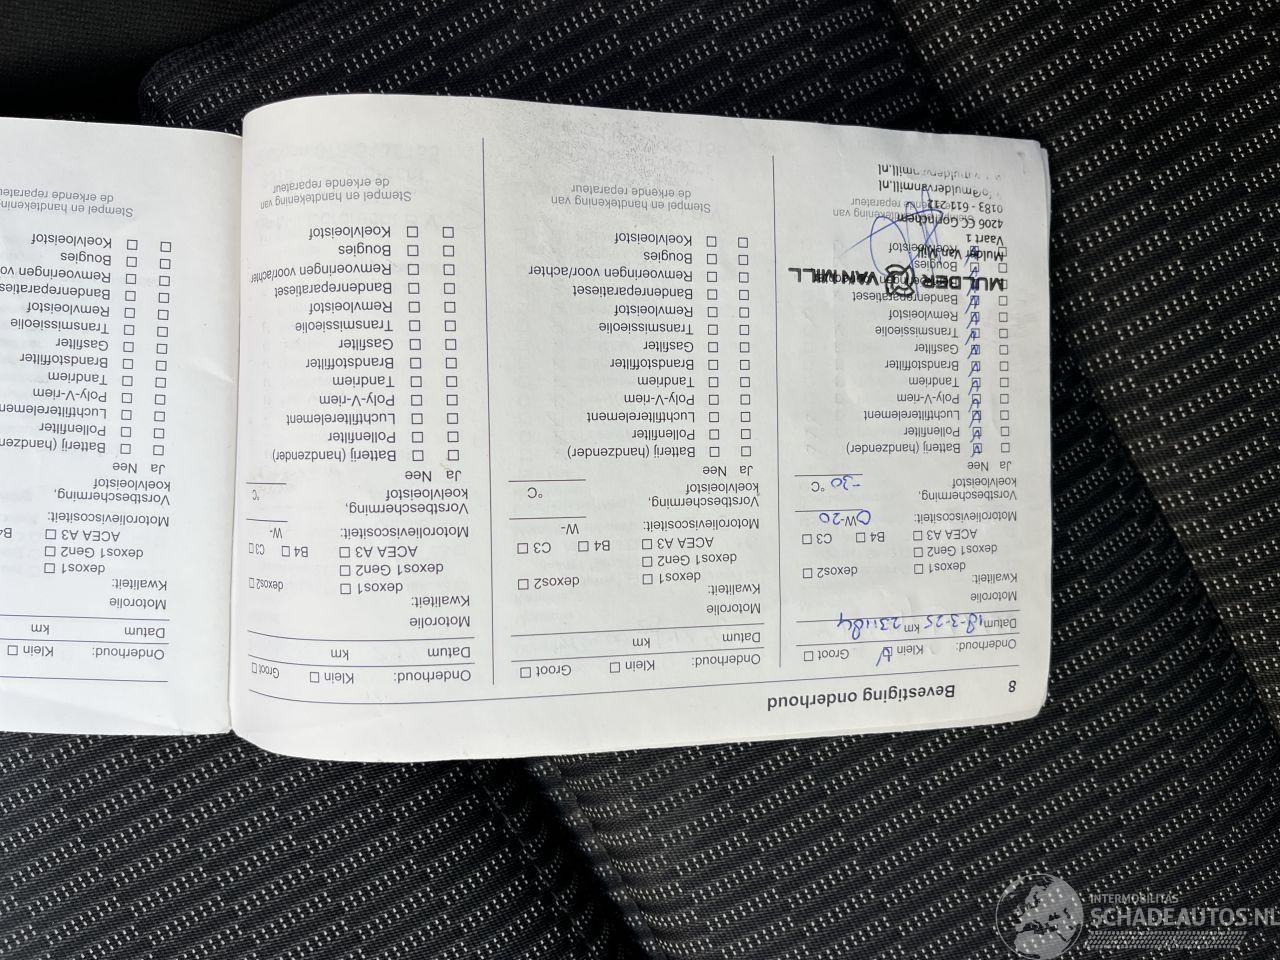 8 Bevestiging onderhoud
Onderhoud: Klein Groot
Datum 18-3-25 km 231184
Motorolie
Kwaliteit:
dexos1 dexos2
dexos1 Gen2
ACEA A3 B4 C3
Motorolieviscositeit: 0W-20
Vorstbescherming,
koelvloeistof -30 °C
Ja Nee
Batterij (handzender)
Pollenfilter
Luchtfilterelement
Poly-V-riem
Tandriem
Brandstoffilter
Gasfilter
Transmissieolie
Remvloeistof
Bandenreparatieset
Bougies
Koelvloeistof
MULDER VAN MILL
Mulder Van Mill
Vaart 1
4206 CC Gorinchem
0183 - 611 212
Onderhoud: Klein Groot
Datum km
Motorolie
Kwaliteit:
dexos1 dexos2
dexos1 Gen2
ACEA A3 B4 C3
Motorolieviscositeit: W-
Vorstbescherming,
koelvloeistof °C
Ja Nee
Batterij (handzender)
Pollenfilter
Luchtfilterelement
Poly-V-riem
Tandriem
Brandstoffilter
Gasfilter
Transmissieolie
Remvloeistof
Bandenreparatieset
Remvoeringen voor/achter
Bougies
Koelvloeistof
Stempel en handtekening van
de erkende reparateur
Onderhoud: Klein Groot
Datum km
Motorolie
Kwaliteit:
dexos1 dexos2
dexos1 Gen2
ACEA A3 B4 C3
Motorolieviscositeit: W-
Vorstbescherming,
koelvloeistof °C
Ja Nee
Batterij (handzender)
Pollenfilter
Luchtfilterelement
Poly-V-riem
Tandriem
Brandstoffilter
Gasfilter
Transmissieolie
Remvloeistof
Bandenreparatieset
Remvoeringen voor/achter
Bougies
Koelvloeistof
Stempel en handtekening van
de erkende reparateur
Onderhoud: Klein
Datum km
Motorolie
Kwaliteit:
dexos1
dexos1 Gen2
ACEA A3 B4
Motorolieviscositeit:
Vorstbescherming,
koelvloeistof
Ja Nee
Batterij (handzen
Pollenfilter
Luchtfilterelemen
Poly-V-riem
Tandriem
Brandstoffilter
Gasfilter
Transmissieolie
Remvloeistof
Bandenreparaties
Remvoeringen vo
Bougies
Koelvloeistof
Stempel en handtekenin
de erkende reparateu
INTERMOBILITAS
SCHADEAUTOS.NL